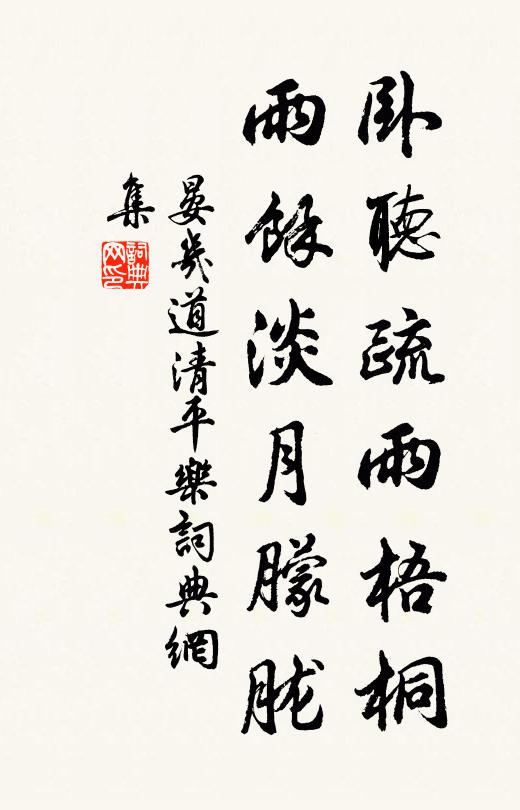 卧聽疏雨梧桐
雨餘淡月朦朧
晏幾道清平樂詞典網
集
詞典網印